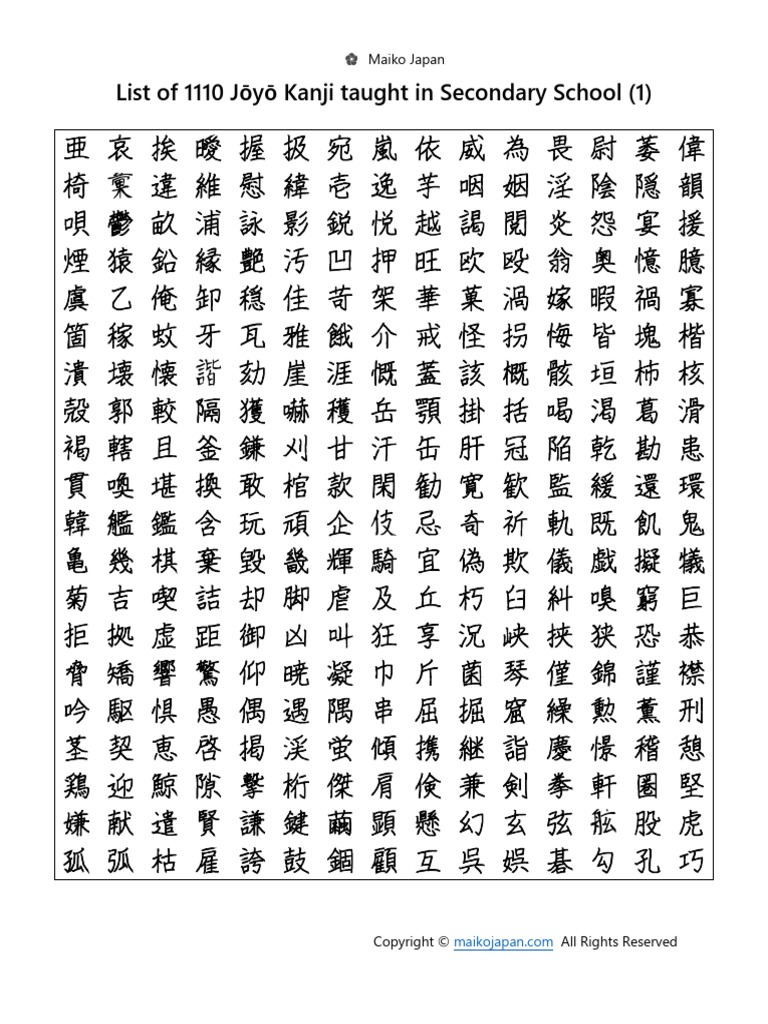 Maiko Japan
List of 1110 Jōyō Kanji taught in Secondary School (1)
亜 哀 挨 曖 握 扱 宛 嵐 依 威 為 畏 尉 萎 偉
椅 彙 違 維 慰 緯 壱 逸 芋 咽 姻 淫 陰 隠 韻
唄 鬱 畝 浦 詠 影 鋭 悦 越 謁 閲 炎 怨 宴 援
煙 猿 鉛 縁 艶 汚 凹 押 旺 欧 殴 翁 奥 憶 臆
虞 乙 俺 卸 穏 佳 苛 架 華 菓 渦 嫁 暇 禍 寡
箇 稼 蚊 牙 瓦 雅 餓 介 戒 怪 拐 悔 皆 塊 楷
潰 壊 懐 諧 劾 崖 涯 慨 蓋 該 概 骸 垣 柿 核
殻 郭 較 隔 獲 嚇 穫 岳 顎 掛 括 喝 渇 葛 滑
褐 轄 且 釜 鎌 刈 甘 汗 缶 肝 冠 陥 乾 勘 患
貫 喚 堪 換 敢 棺 款 閑 勧 寛 歓 監 緩 還 環
韓 艦 鑑 含 玩 頑 企 伎 忌 奇 祈 軌 既 飢 鬼
亀 幾 棋 棄 毀 畿 輝 騎 宜 偽 欺 儀 戯 擬 犠
菊 吉 喫 詰 却 脚 虐 及 丘 朽 臼 糾 嗅 窮 巨
拒 拠 虚 距 御 凶 叫 狂 享 況 峡 挟 狭 恐 恭
脅 矯 響 驚 仰 暁 凝 巾 斤 菌 琴 僅 錦 謹 襟
吟 駆 惧 愚 偶 遇 隅 串 屈 掘 窟 繰 勲 薫 刑
茎 契 恵 啓 掲 渓 蛍 傾 携 継 詣 慶 憬 稽 憩
鶏 迎 鯨 隙 撃 桁 傑 肩 倹 兼 剣 拳 軒 圏 堅
嫌 献 遣 賢 謙 鍵 繭 顕 懸 幻 玄 弦 舷 股 虎
孤 弧 枯 雇 誇 鼓 錮 顧 互 呉 娯 碁 勾 孔 巧
Copyright © maikojapan.com All Rights Reserved